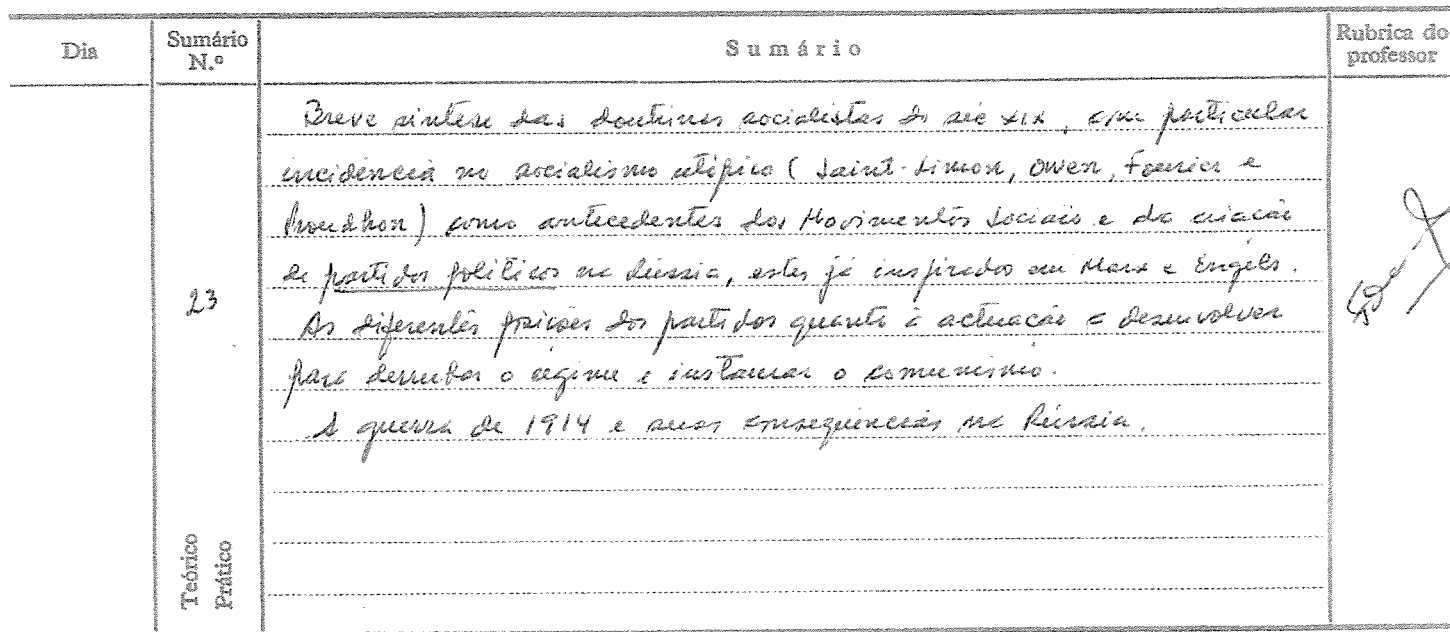 Dia
Sumário N.º
Sumário
Rubrica do professor
Breve síntese das doutrinas socialistas do séc XIX, com particular
incidência no socialismo utópico (Saint-Simon, Owen, Fourier e
Proudhon) como antecedentes dos Movimentos Sociais e da criação
de partidos políticos na Rússia, estes já inspirados em Marx e Engels.
23
As diferentes posições dos partidos quanto à actuação a desenvolver
para derrubar o regime e instaurar o comunismo.
A guerra de 1914 e suas consequências na Rússia.
Teórico
Prático